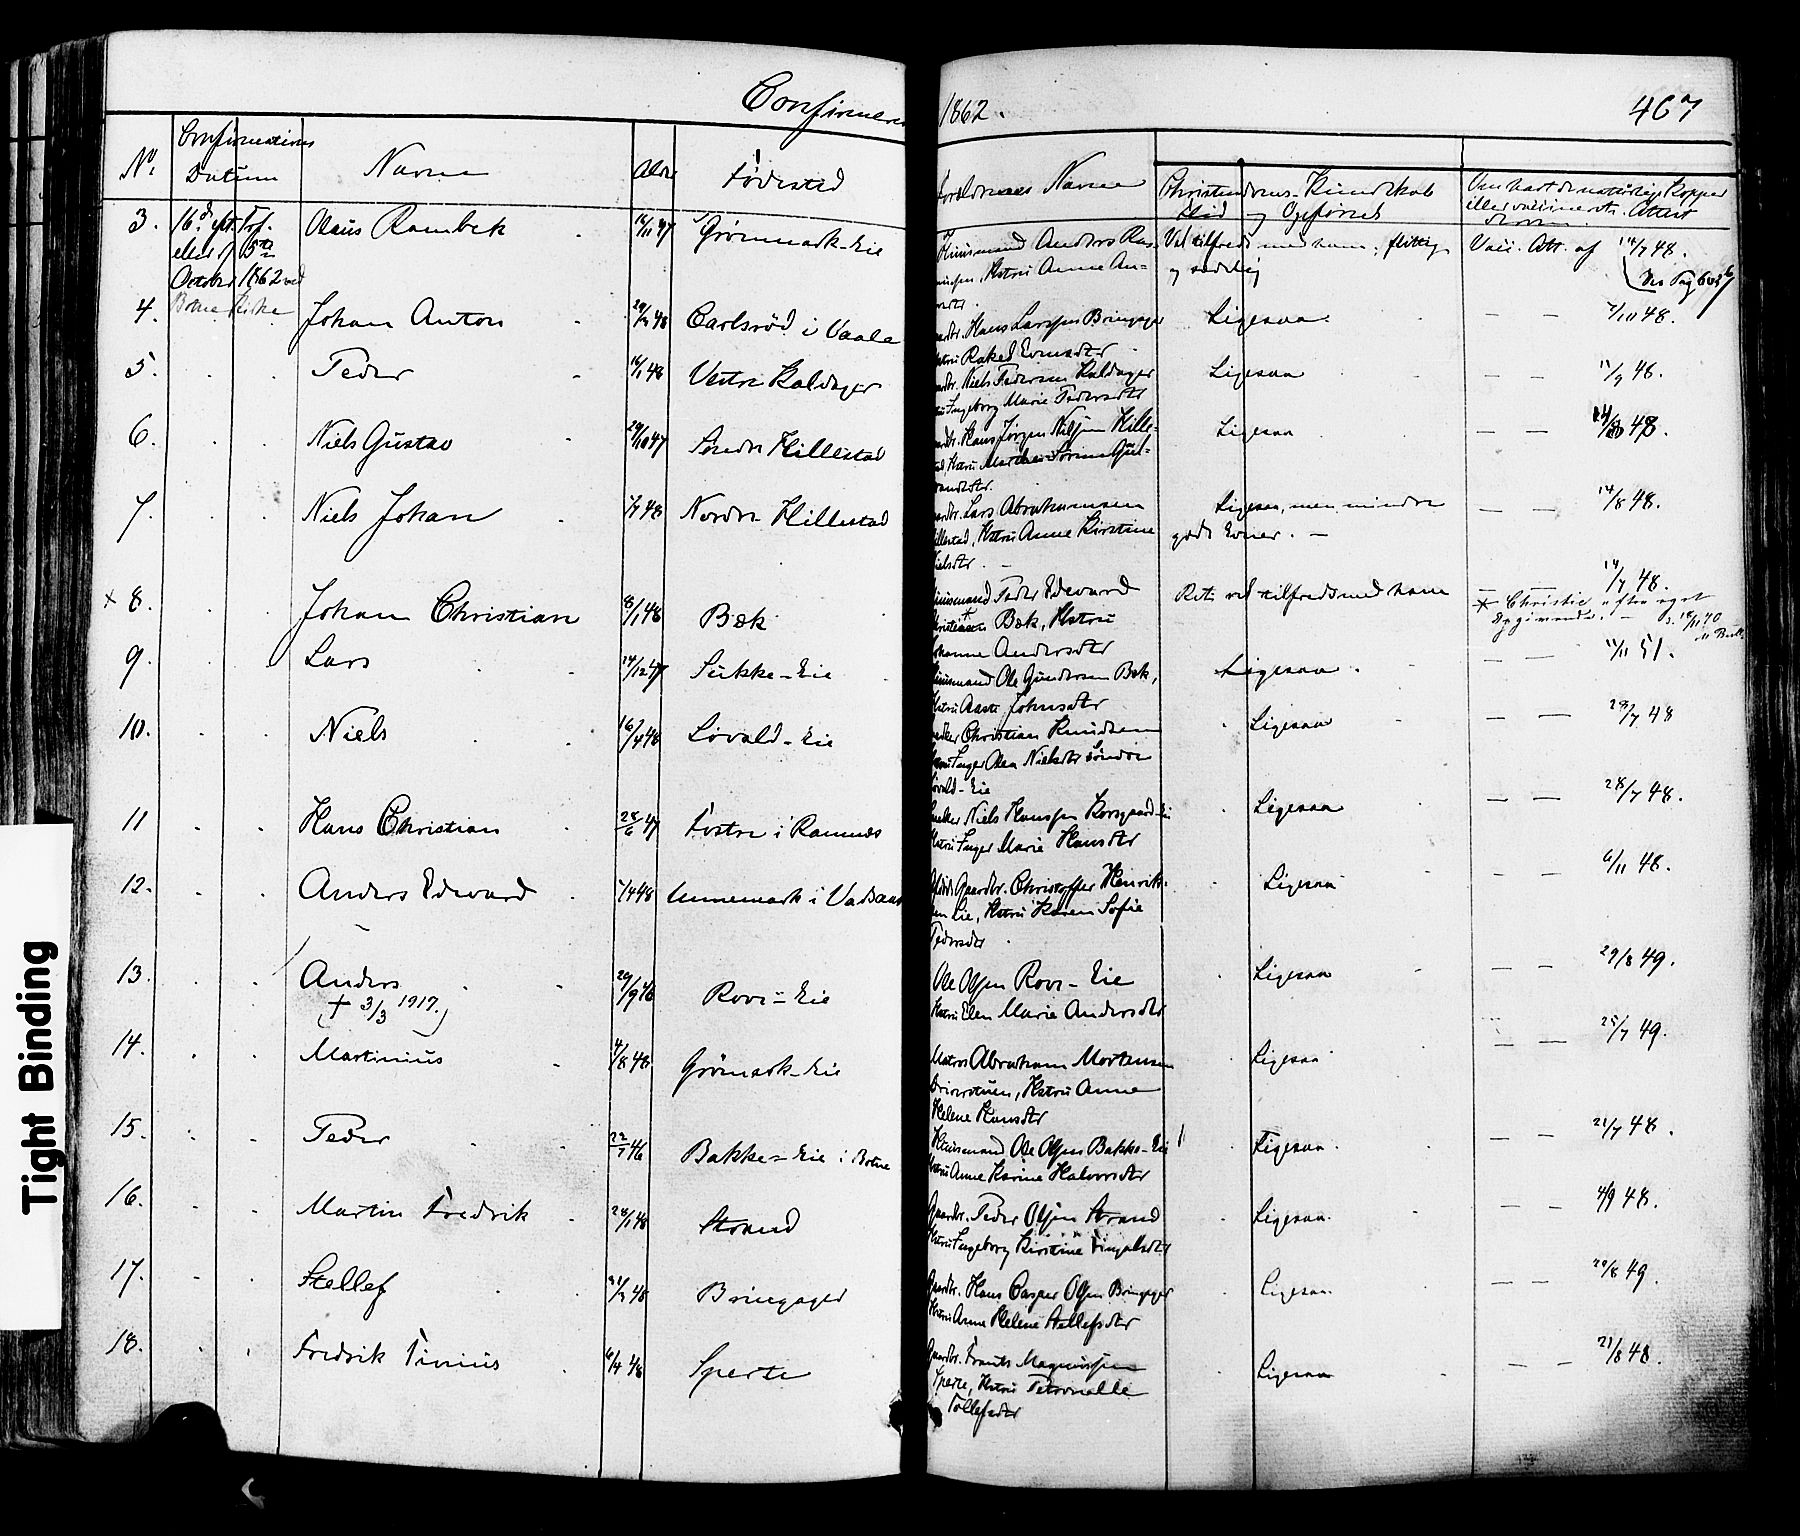 Confirmere
1862.
467
No.
Confirmations
Datum
Navn
Alder
Födested
Forældrenes Navne
Christendoms-Kundskab
Flid og Opförsel
Om havt de naturlige Kopper
eller vaccinerte. Attest
3. 16de
eller
5te
October 1862 ved
Botne Kirke
Olaus Rambek
16/11 47
Grönmark-Eie
Huusmand Anders Ras-
mussen, Hstru Anna An-
Vel tilfreds med ham, flittig
og sædelig
Vacc. Att. af 14/7 48.
4. Johan Anton
29/2 48
Carlsröd i Vaale
Gaardbr. Hans Larssen Bringager
Hstru Rakel Evensdtr
Ligesaa.
— — 7/10 48.
5. Peder
16/1 48
Vestre Kaldager
Niels Pedersen Kaldager
Ingeborg Marie Pedersdtr
Ligesaa
— — 17/9 48.
6. Niels Gustav
29/10 47
Söndre Hillestad
Hans Jörgen Nilssen Hille-
stad, Hstru Marthe Sorine Gul-
brandsdtr.
Ligesaa
— — 48.
7. Niels Johan
48
Nordre Hillestad
Lars Abrahamsen
Hillestad, Hstru Anne Kirstine
Nielsdtr. —
Ligesaa, men mindre
gode Evner. —
— — 14/8 48.
× 8. Johan Christian
8/1 48
Bæk
Huusmand Peder Edevard
Christensen Bæk, Hstru
Johanne Andersdtr
Ret vel tilfreds med ham
— — 14/7 48.
× Christie efter eget
Opgivende. —
9. Lars
24/12 47
Sukke-Eie
Huusmand Ole Gundersen Bæk,
Hstru Aaste Johnsdtr
Ligesaa.
— — 11/11 51.
10. Niels
16/4 48
Lövald-Eie
Christian Knudsen
Hstru Inger Olea Nielsdtr Söndre
Lövald-Eie
Ligesaa
— — 28/7 48
11 Hans Christian
28/6 47
Fostre i Ramnes
Niels Hanssen Korsgaard-Eie
Hstru Inger Marie Hansdtr
Ligesaa
— — 28/7 48.
12. Anders Edevard
1/4 48
Unnemark i
Gaardbr. Christoffer Henrik-
sen Lie, Hstru Karen Sofie
Pedersdtr.
Ligesaa
— — 6/11 48.
13. Anders
(† 3/3 1917.)
29/9 46
Rove-Eie
Ole Olsen Rove-Eie
Hstru Elen Marie Andersdtr
Ligesaa
— — 29/8 49.
14. Martinius
4/8 48
Grömark-Eie
Matros Abraham Mortensen
Hstru Anne
Helene Hansdtr
Ligesaa
— — 25/7 49.
15. Peder
22/7 46
Bakke-Eie i Botne
Huusmand Ole Olsen Bakke-Eie
Hstru Anne Karine Halvorsdtr
Ligesaa.
— — 21/7 48.
16. Martin Fredrik
28/1 48
Strand
Gaardbr. Peder Olsen Strand
Hstru Ingeborg Kirstine
Ligesaa.
— — 4/9 48.
17. Stellef
48
Bringager
Gaardbr. Hans Casper Olsen Bringager
Hstru Anne Helene Stellefsdtr
Ligesaa.
— — 29/8 49.
18. Fredrik Tinius
6/4 48
Sperte
Gaardbr. Frants Magnussen
Sperte, Hstru Petronelle
Tollefsdtr
Ligesaa
— — 21/8 48.
Tight Binding